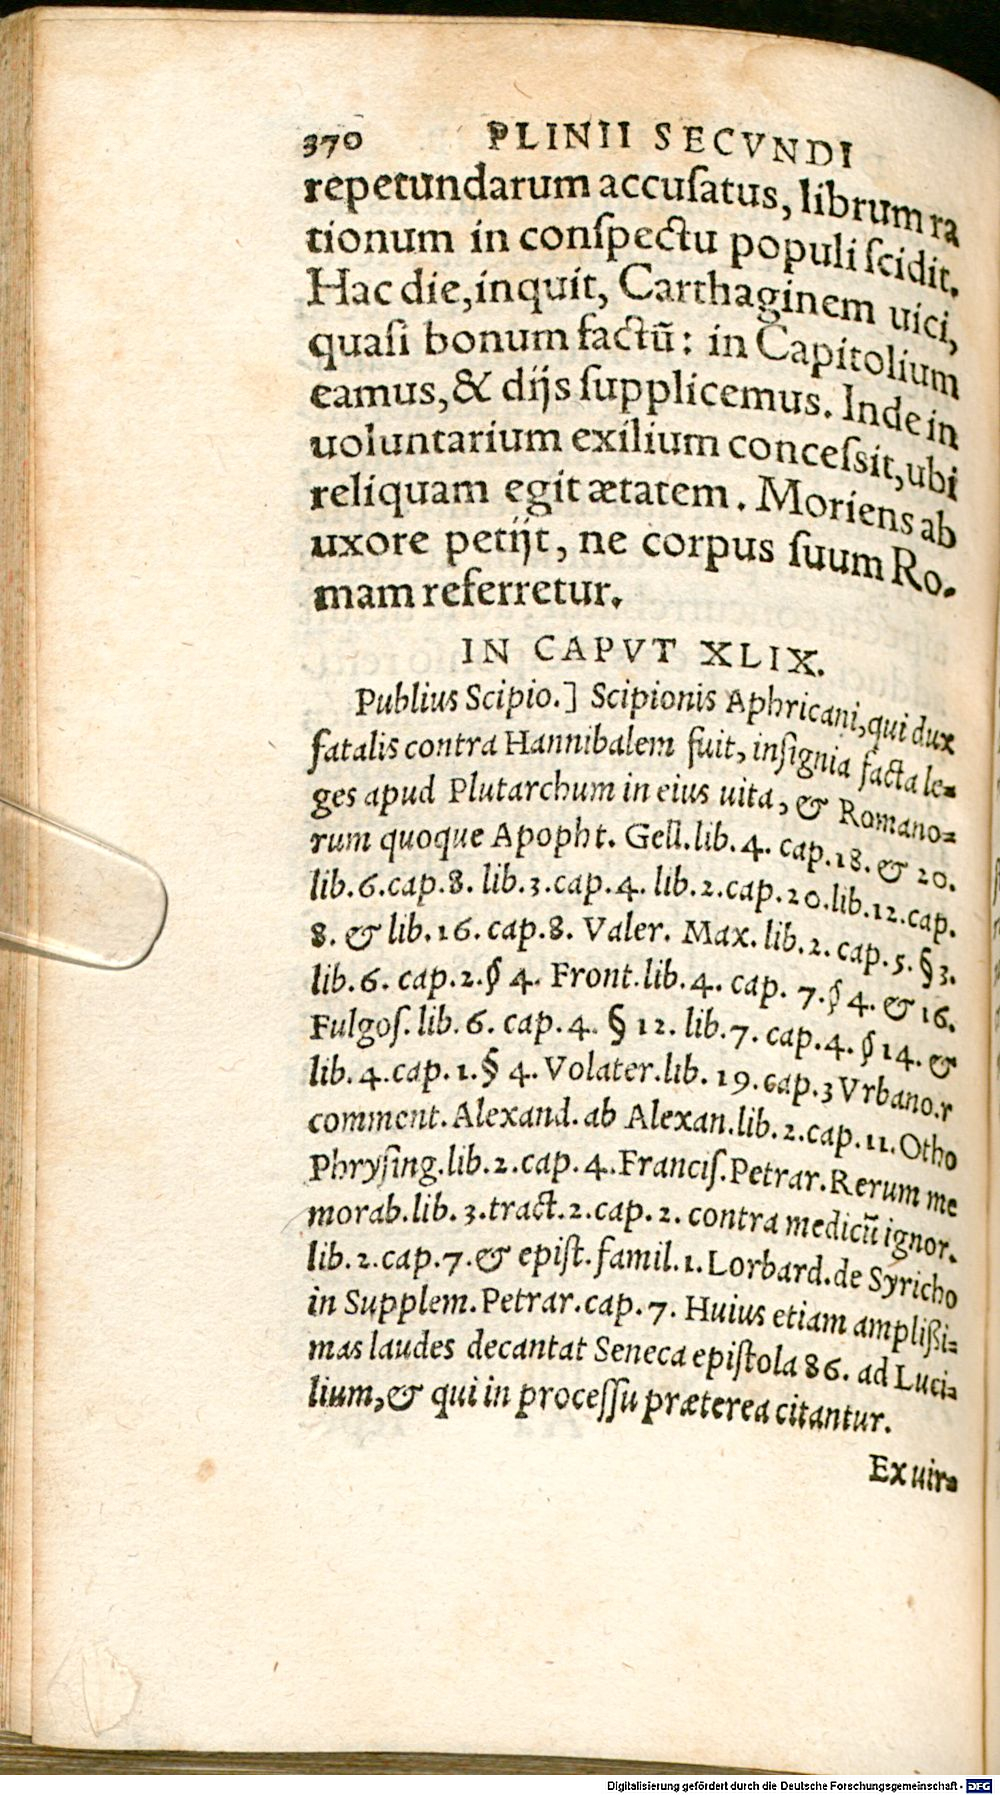 370 PLINII SECVNDI
repetundarum accuſatus, librum ra
tionum in conſpectu populi ſcidit.
Hac die, inquit, Carthaginem uici,
quaſi bonum factū: in Capitolium
eamus, & dijs ſupplicemus. Inde in
uoluntarium exilium conceſsit, ubi
reliquam egit ætatem. Moriens ab
uxore petijt, ne corpus ſuum Ro-
mam referretur.
IN CAPVT XLIX.
Publius Scipio.] Scipionis Aphricani, qui dux
fatalis contra Hannibalem fuit, inſignia facta le-
ges apud Plutarchum in eius uita, & Romano-
rum quoque Apopht. Gell. lib. 4. cap. 18. & 20.
lib. 6. cap. 8. lib. 3. cap. 4. lib. 2. cap. 20. lib. 12. cap.
8. & lib. 16. cap. 8. Valer. Max. lib. 2. cap. 5. § 3.
lib. 6. cap. 2. § 4. Front. lib. 4. cap. 7. § 4. & 16.
Fulgoſ. lib. 6. cap. 4. § 12. lib. 7. cap. 4. § 14. &
lib. 4. cap. 1. § 4. Volater. lib. 19. cap. 3 Vrbano. r
comment. Alexand. ab Alexan. lib. 2. cap. 11. Otho
Phryſing. lib. 2. cap. 4. Franciſ. Petrar. Rerum me
morab. lib. 3. tract. 2. cap. 2. contra medicū ignor.
lib. 2. cap. 7. & epiſt. famil. 1. Lorbard. de Syricho
in Supplem. Petrar. cap. 7. Huius etiam amplißi-
mas laudes decantat Seneca epiſtola 86. ad Luci-
lium, & qui in proceſſu præterea citantur.
Ex uir-
Digitalisierung gefördert durch die Deutsche Forschungsgemeinschaft - DFG